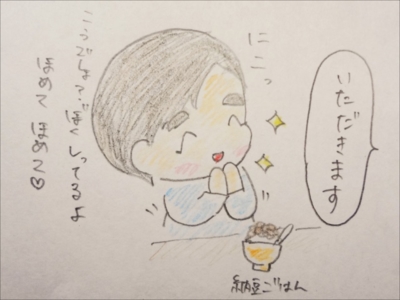 いただきます
にこっ
こうでしょ?ぼくしってるよ
ほめて ほめて♡
納豆ごはん